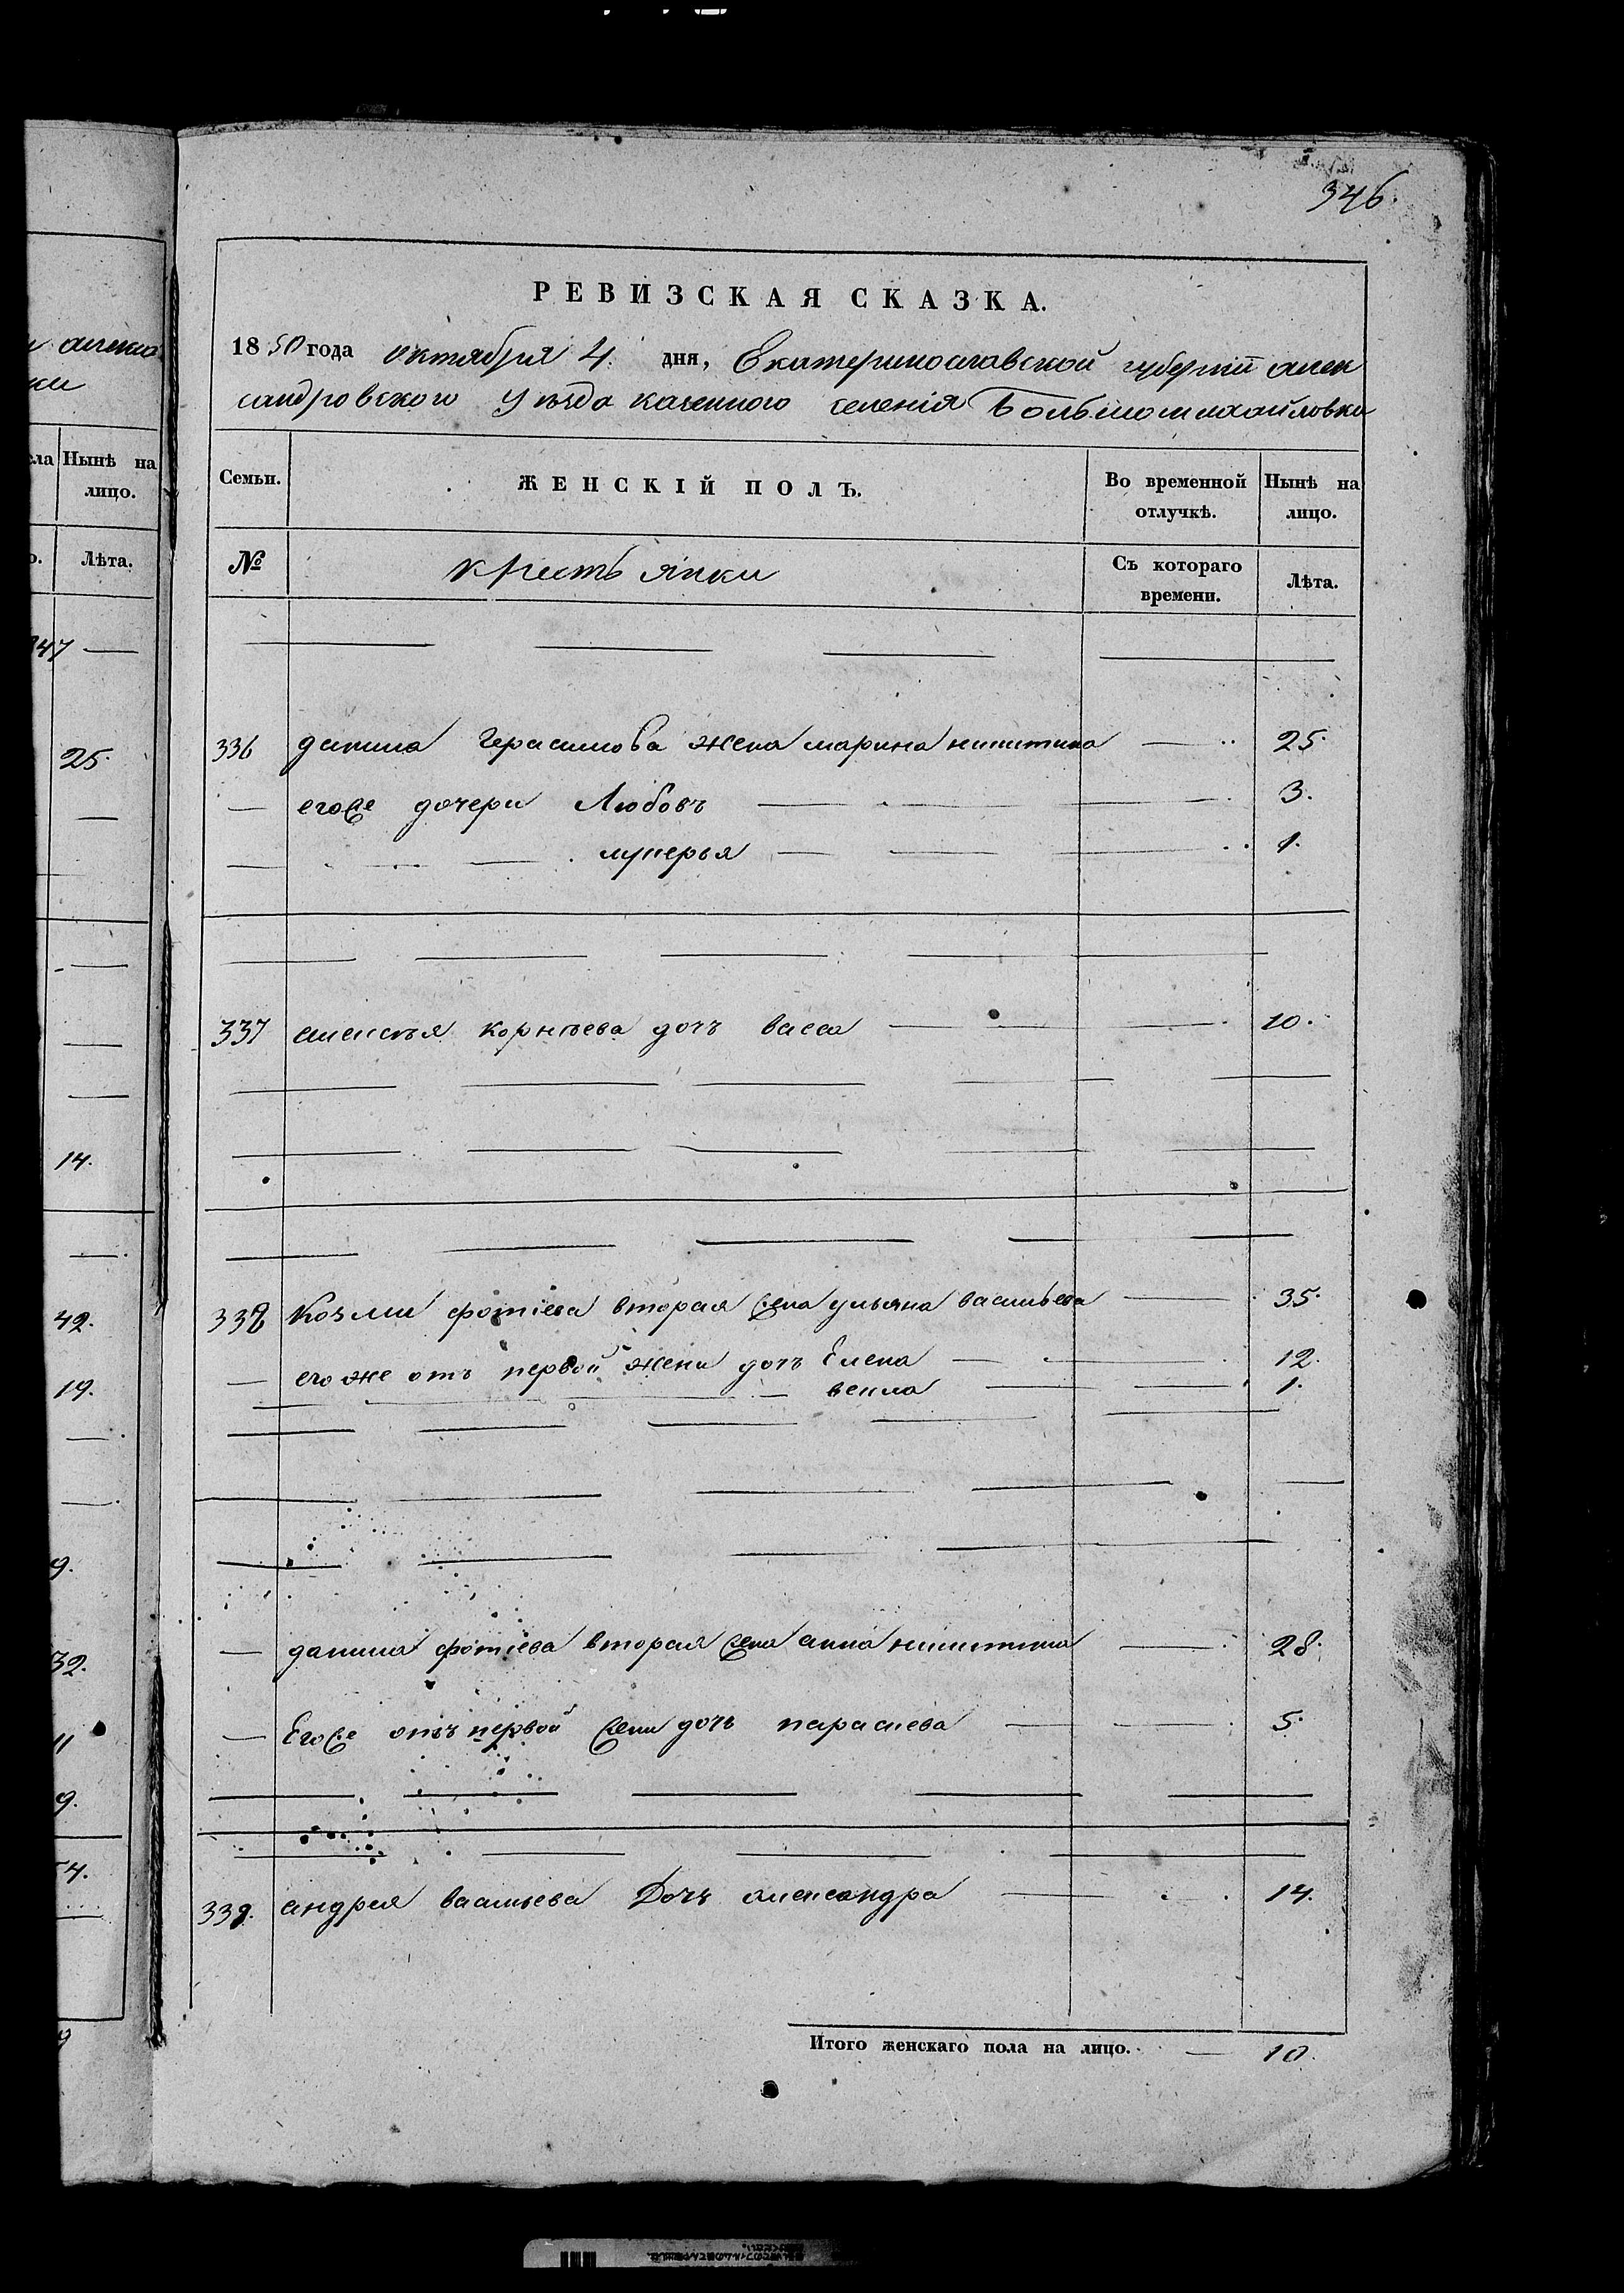 346.
РЕВИЗСКАЯ СКАЗКА.
1850 года октября 4 дня, Екатеринославской губернии алек
сандровского уезда казенного селенія большомихайловки
Семьи. ЖЕНСКІЙ ПОЛЪ. Во временной отлучкѣ. Нынѣ на лицо.
№ крестьянки Съ котораго времени. Лѣта.
336 данила Герасимова жена марина никитина 25.
егоже дочери Любовъ 3.
лукерья 1.
337 алексѣя корнѣева дочъ васса 10.
338 козми фотіева вторая жена ульяна васильева 35.
его же отъ первой жени дочъ Елена 12.
векла 1.
данила фотіева вторая жена анна никитина 28.
Егоже отъ первой жени дочъ параскева 5.
339. андрея васильева Дочъ александра 14.
Итого женскаго пола на лицо. 10.
Нынѣ на
лицо.
Лѣта.
25.
14.
42.
19.
9.
32.
11
9.